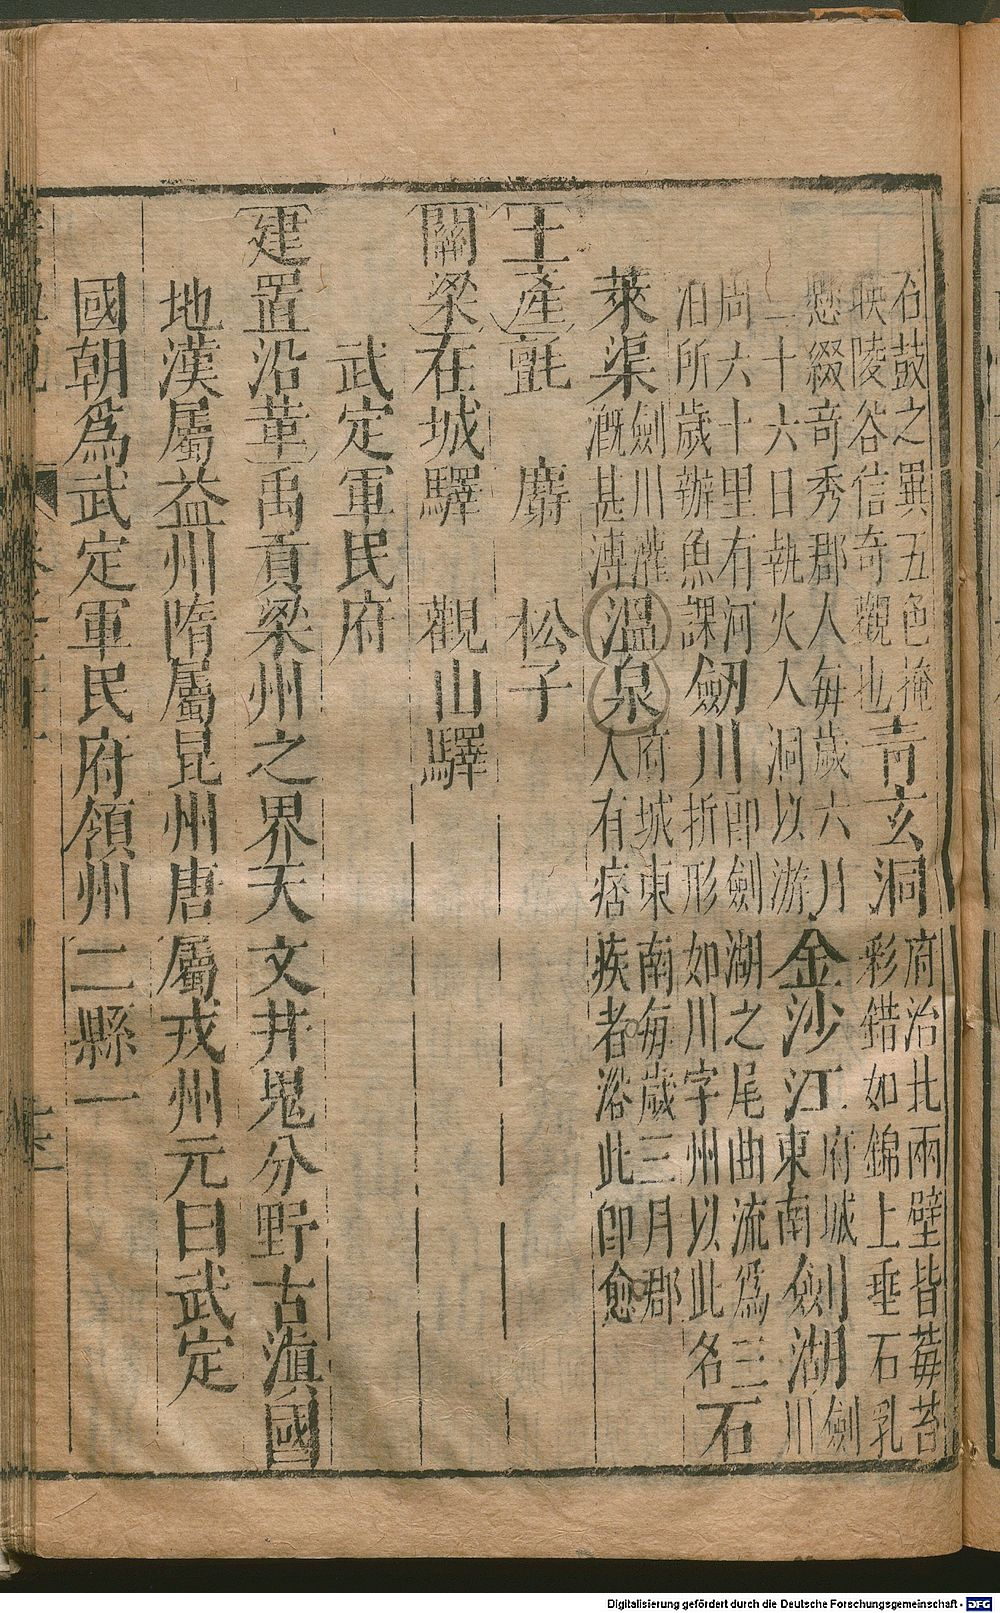 石鼓之異五色掩
映陵谷信奇觀也
青玄洞
府治北兩壁皆莓苔
彩錯如錦上垂石乳
懸綴奇秀郡人每歲六月
二十六日執火入洞以游
金沙江
府城
東南
劍湖
劍
川
周六十里有河
泊所歲辦魚課
劒川
即劍湖之尾曲流爲三
折形如川字州以此名
石
萊渠
劍川灌
溉甚溥
溫泉
府城東南每歲三月郡
人有痞疾者浴此即愈
土產氈 麝 松子
關梁在城驛 觀山驛
武定軍民府
建置沿革禹貢梁州之界天文井鬼分野古滇國
地漢屬益州隋屬昆州唐屬戎州元曰武定
國朝爲武定軍民府領州二縣一
Digitalisierung gefördert durch die Deutsche Forschungsgemeinschaft - DFG